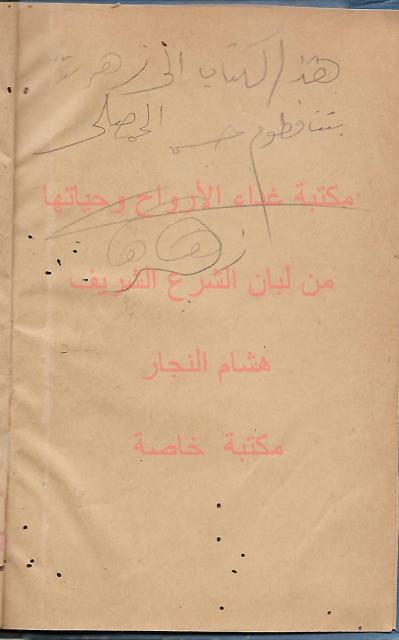 هذا الكتاب الى زهرة
بنت فطوم حسن الحمصلي
مكتبة غذاء الأرواح وحياتها
زهرة
من لبان الشرع الشريف
هشام النجار
مكتبة خاصة